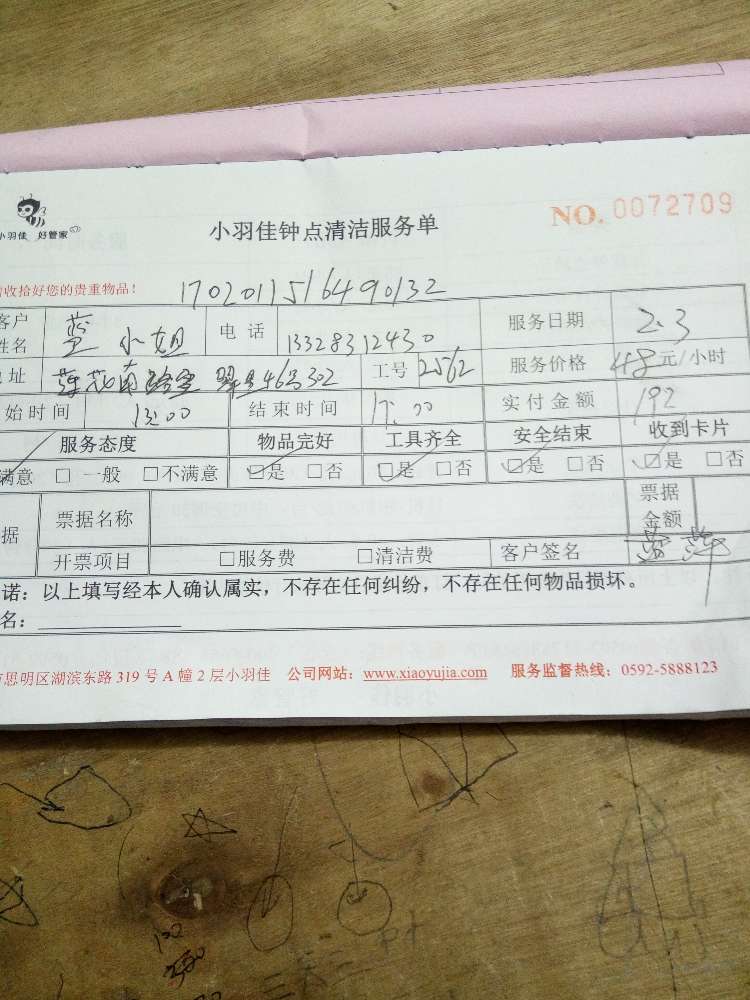 小羽佳 好管家
小羽佳钟点清洁服务单
NO. 0072709
收拾好您的贵重物品!
1702011516490132
客户姓名 蓝小姐 电话 13328312430 服务日期 2.3
址 莲花南路 46号302 工号 2562 服务价格 48元/小时
始时间 13:00 结束时间 17:00 实付金额 192
服务态度 物品完好 工具齐全 安全结束 收到卡片
满意 □一般 □不满意 □是 □否 □是 □否 □是 □否 □是 □否
据 票据名称 票据金额
开票项目 □服务费 □清洁费 客户签名 蓝萍
诺:以上填写经本人确认属实,不存在任何纠纷,不存在任何物品损坏。
名:
思明区湖滨东路319号A幢2层小羽佳 公司网站:www.xiaoyujia.com 服务监督热线:0592-5888123